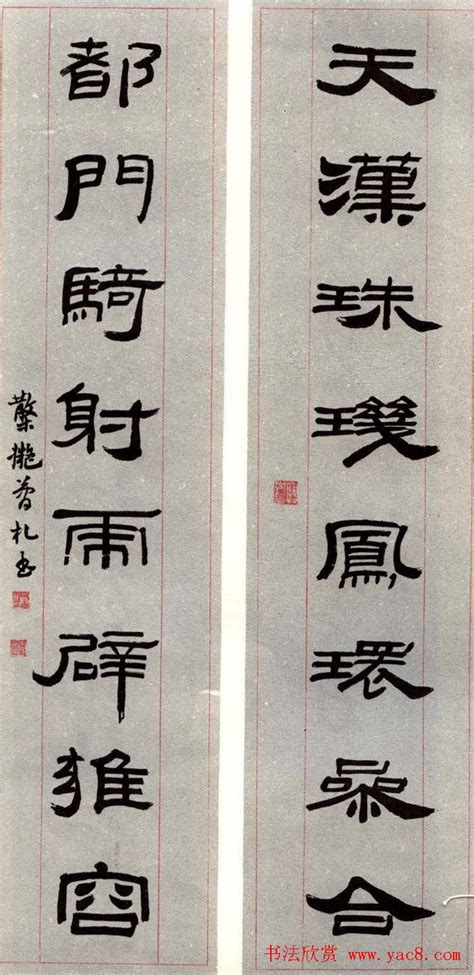 天漢珠璣鳳環合
都門騎射辟雍容
札書
书法欣赏 www.yac8.com